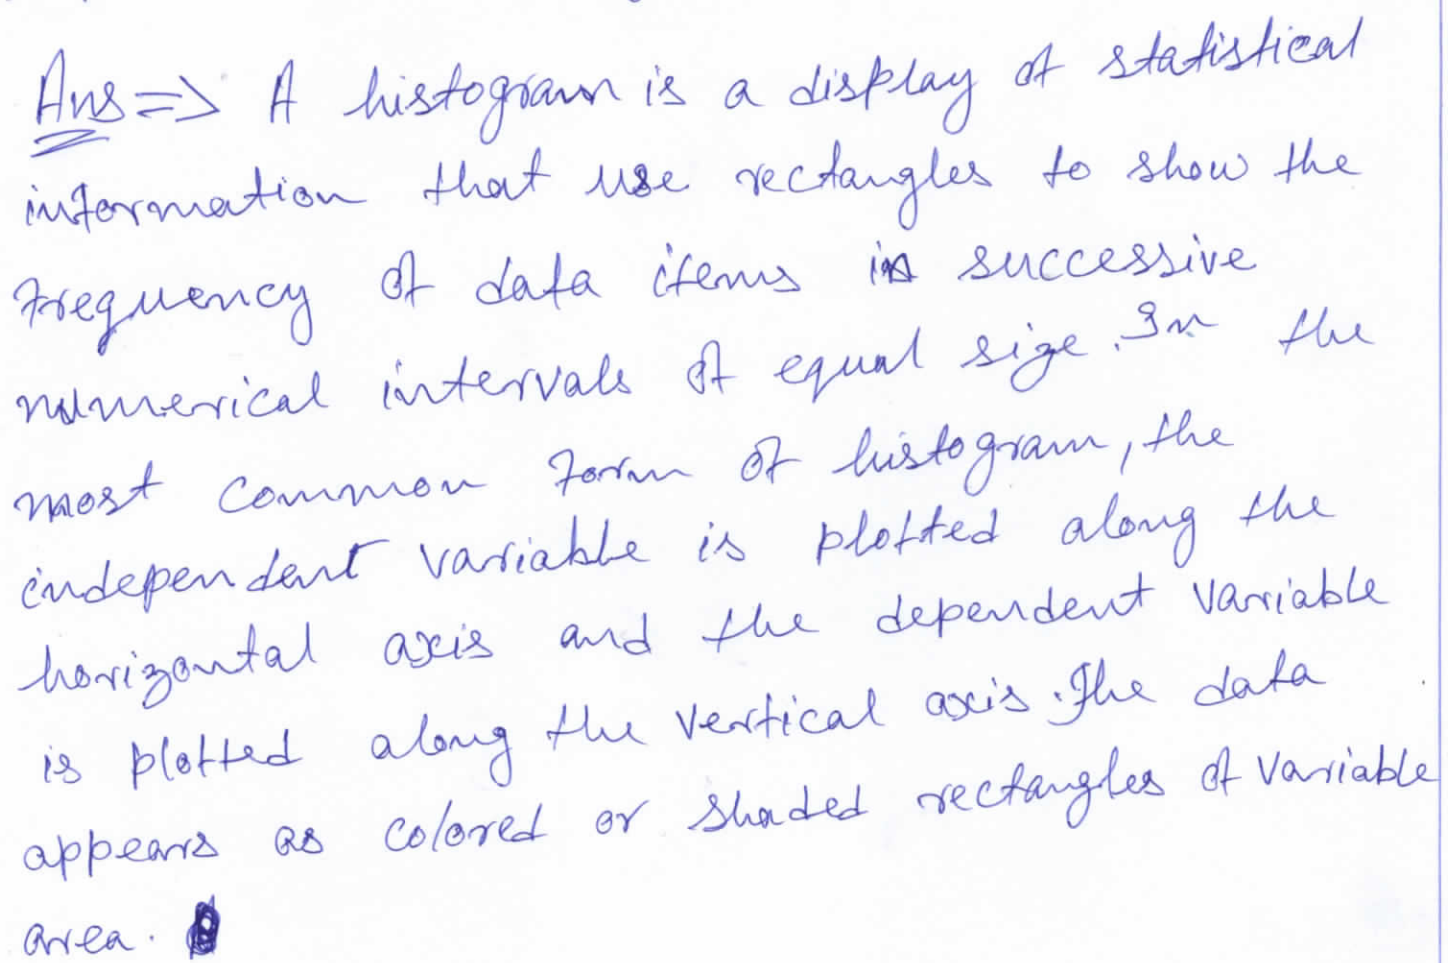 Ans => A histogram is a display of statistical
information that use rectangles to show the
frequency of data items in successive
numerical intervals of equal size. In the
most common form of histogram, the
independent variable is plotted along the
horizontal axis and the dependent variable
is plotted along the vertical axis. The data
appears as colored or shaded rectangles of variable
area.